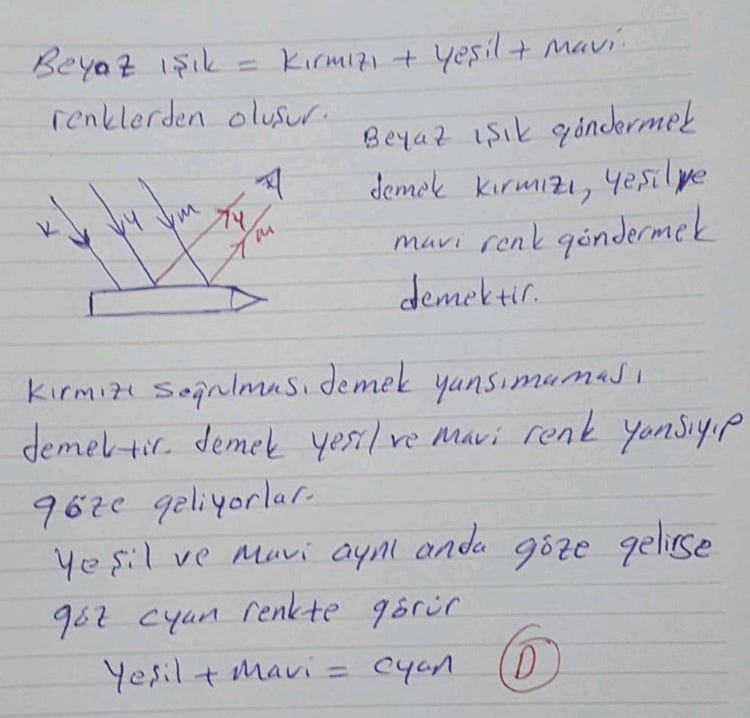 Beyaz ışık = kırmızı + yeşil + mavi.
renklerden oluşur.
Beyaz ışık göndermek
demek kırmızı, yeşil ve
mavi renk göndermek
demektir.
K
y
m
y
m
Kırmızı soğrulması demek yansımaması
demektir. demek yeşil ve mavi renk yansıyıp
göze geliyorlar.
Yeşil ve mavi aynı anda göze gelirse
göz cyan renkte görür
Yeşil + mavi = cyan D